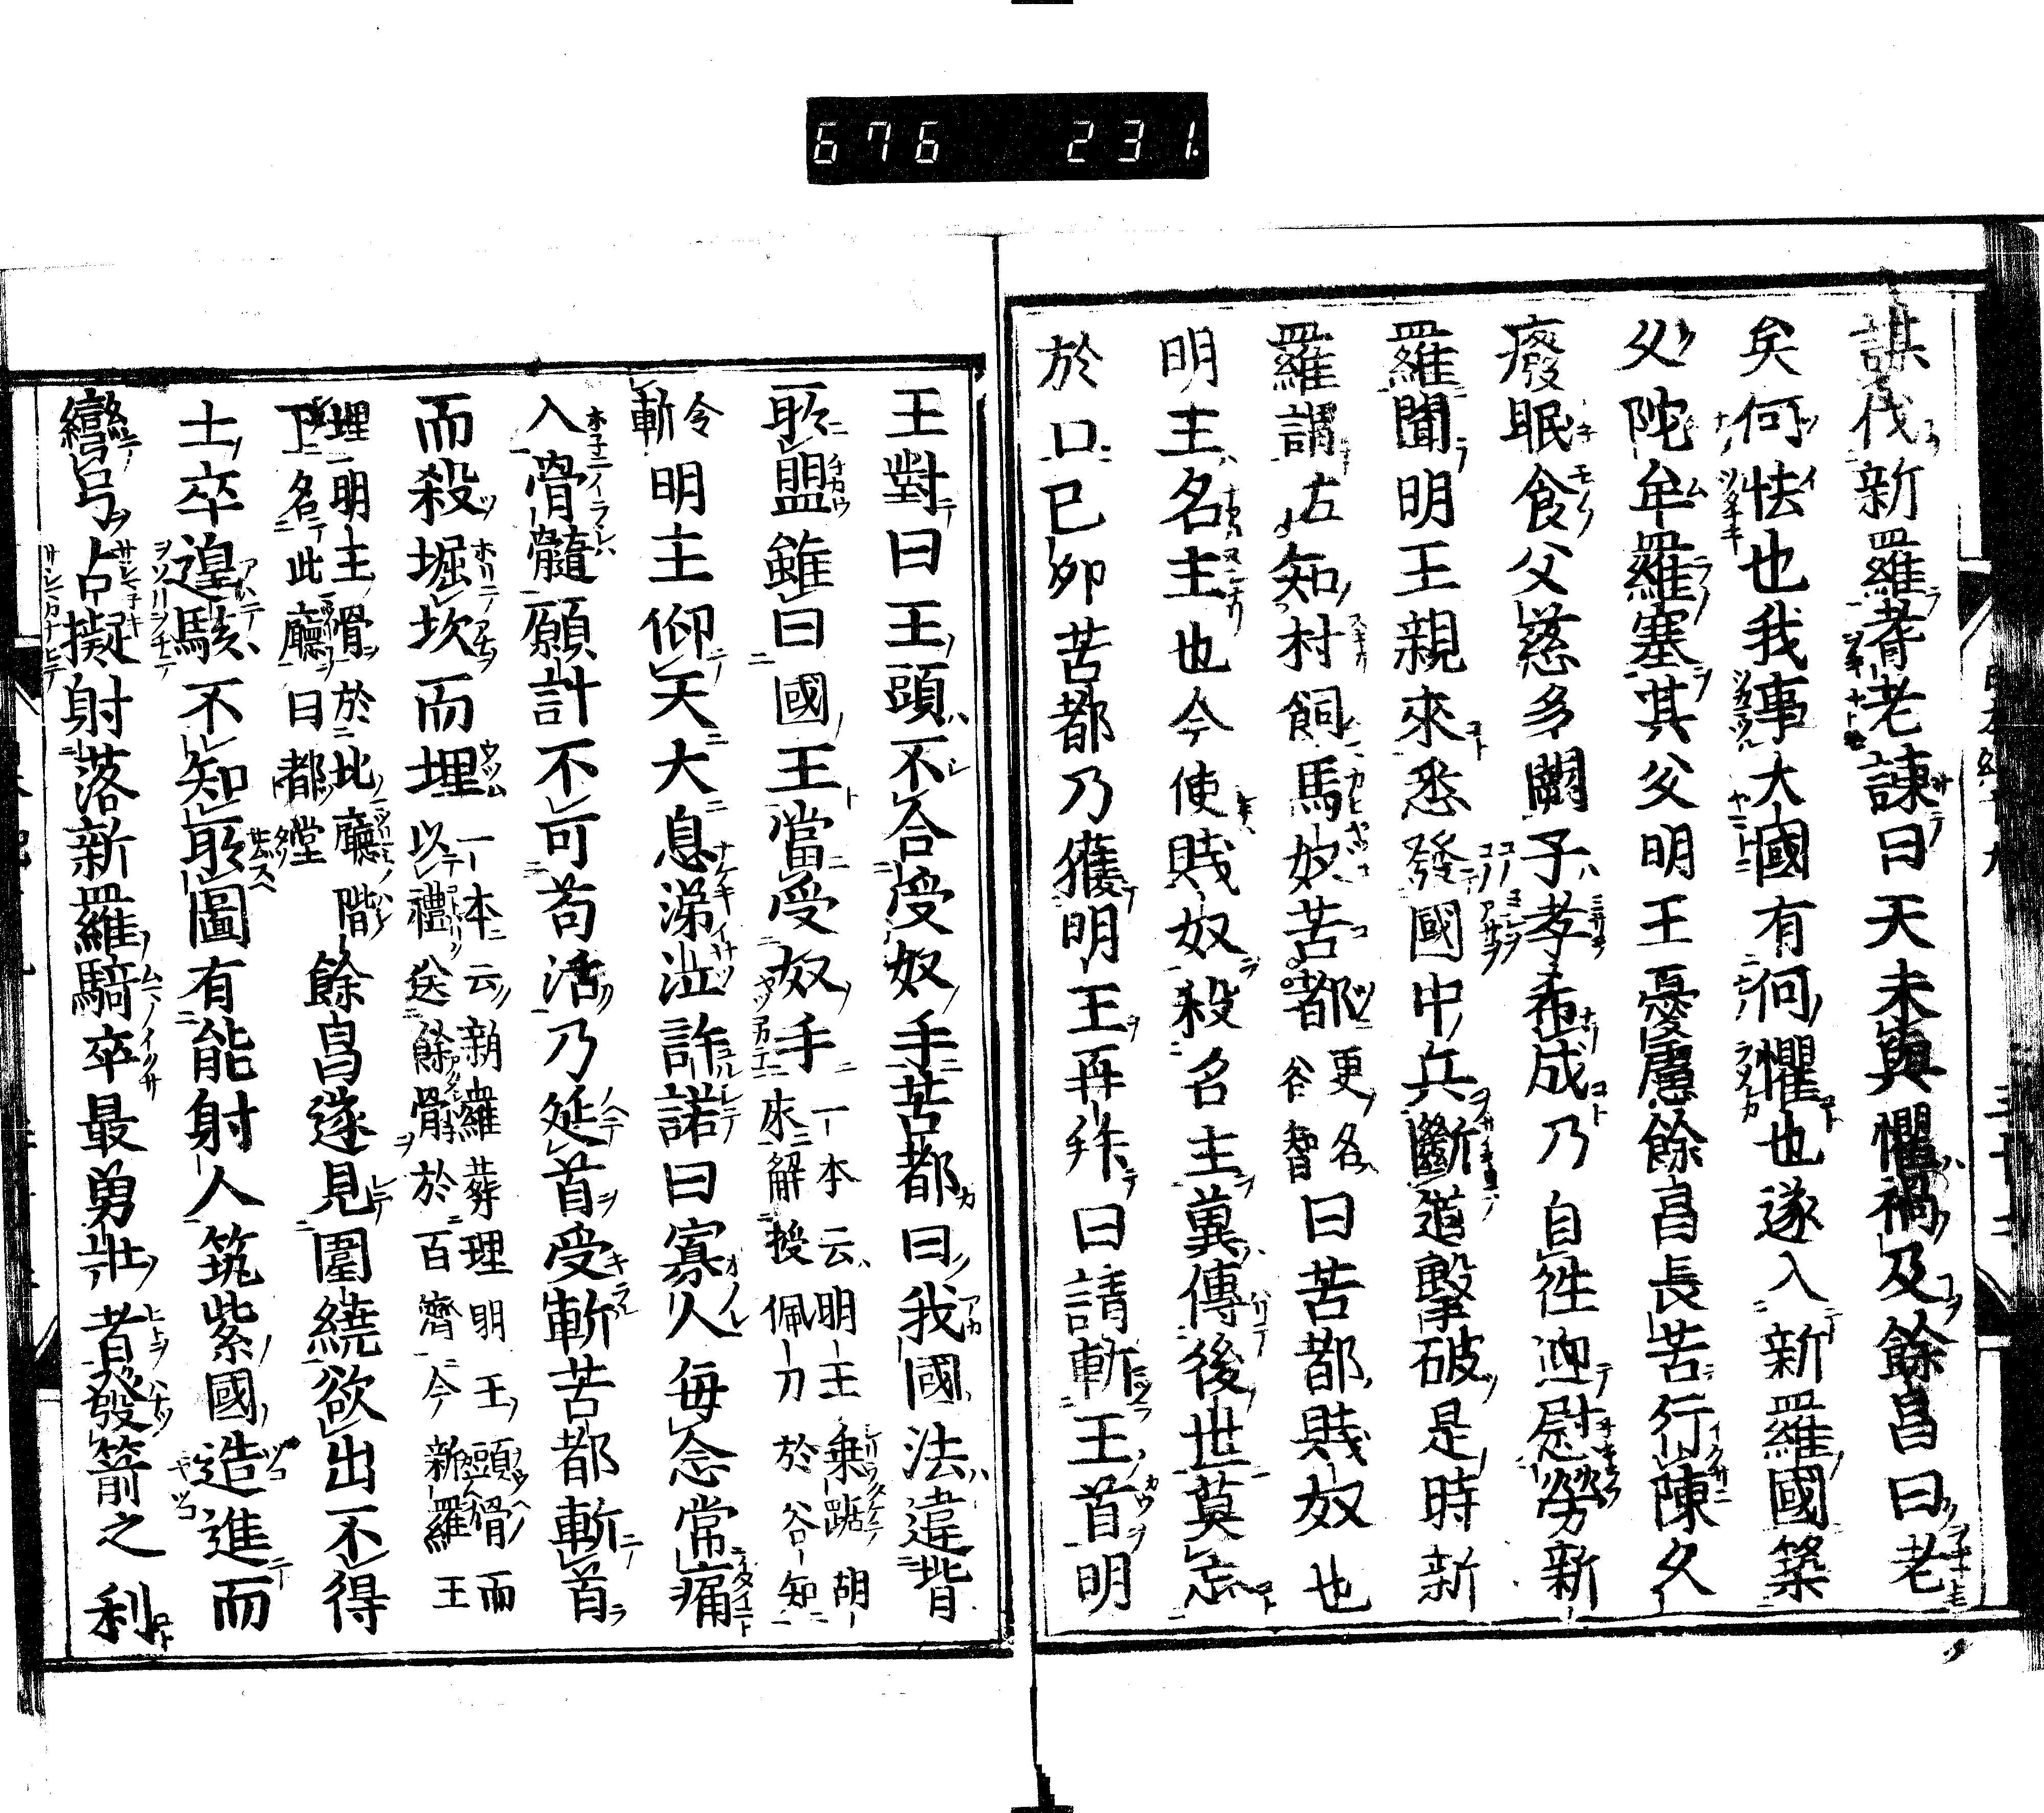 676 231.
謀伐新羅耆老諌曰天未與懼禍及餘昌曰老
矣何怯也我事大國有何懼也遂入新羅國築
久陀牟羅塞其父明王憂慮餘昌長苦行陳久
癈眠食父慈多闕子孝希成乃自徃迎慰勞新
羅聞明王親來悉發國中兵斷道擊破是時新
羅謂左知村飼馬奴苦都更名谷智曰苦都賎奴也
明主名主也今使賎奴殺名主兾傳後世莫忘
於口已夘苦都乃獲明王再拜曰請斬王首明
王對曰王頭不合受奴手苦都曰我國法違背
所盟雖曰國王當受奴手一本云明主乗踞胡
床解授佩刀於谷知
令斬明主仰天大息涕泣許諾曰寡人每念常痛
入骨髓願計不可苟活乃延首受斬苦都斬首
而殺堀坎而埋一本云新羅葬理明王頭骨而
以禮送餘骨於百濟今新羅王
埋明主骨於此廳階
下名此廳曰都堂餘昌遂見圍繞欲出不得
士卒遑駭不知所圖有能射人筑紫國造進而
彎弓占擬射落新羅騎卒最勇壯者發箭之利